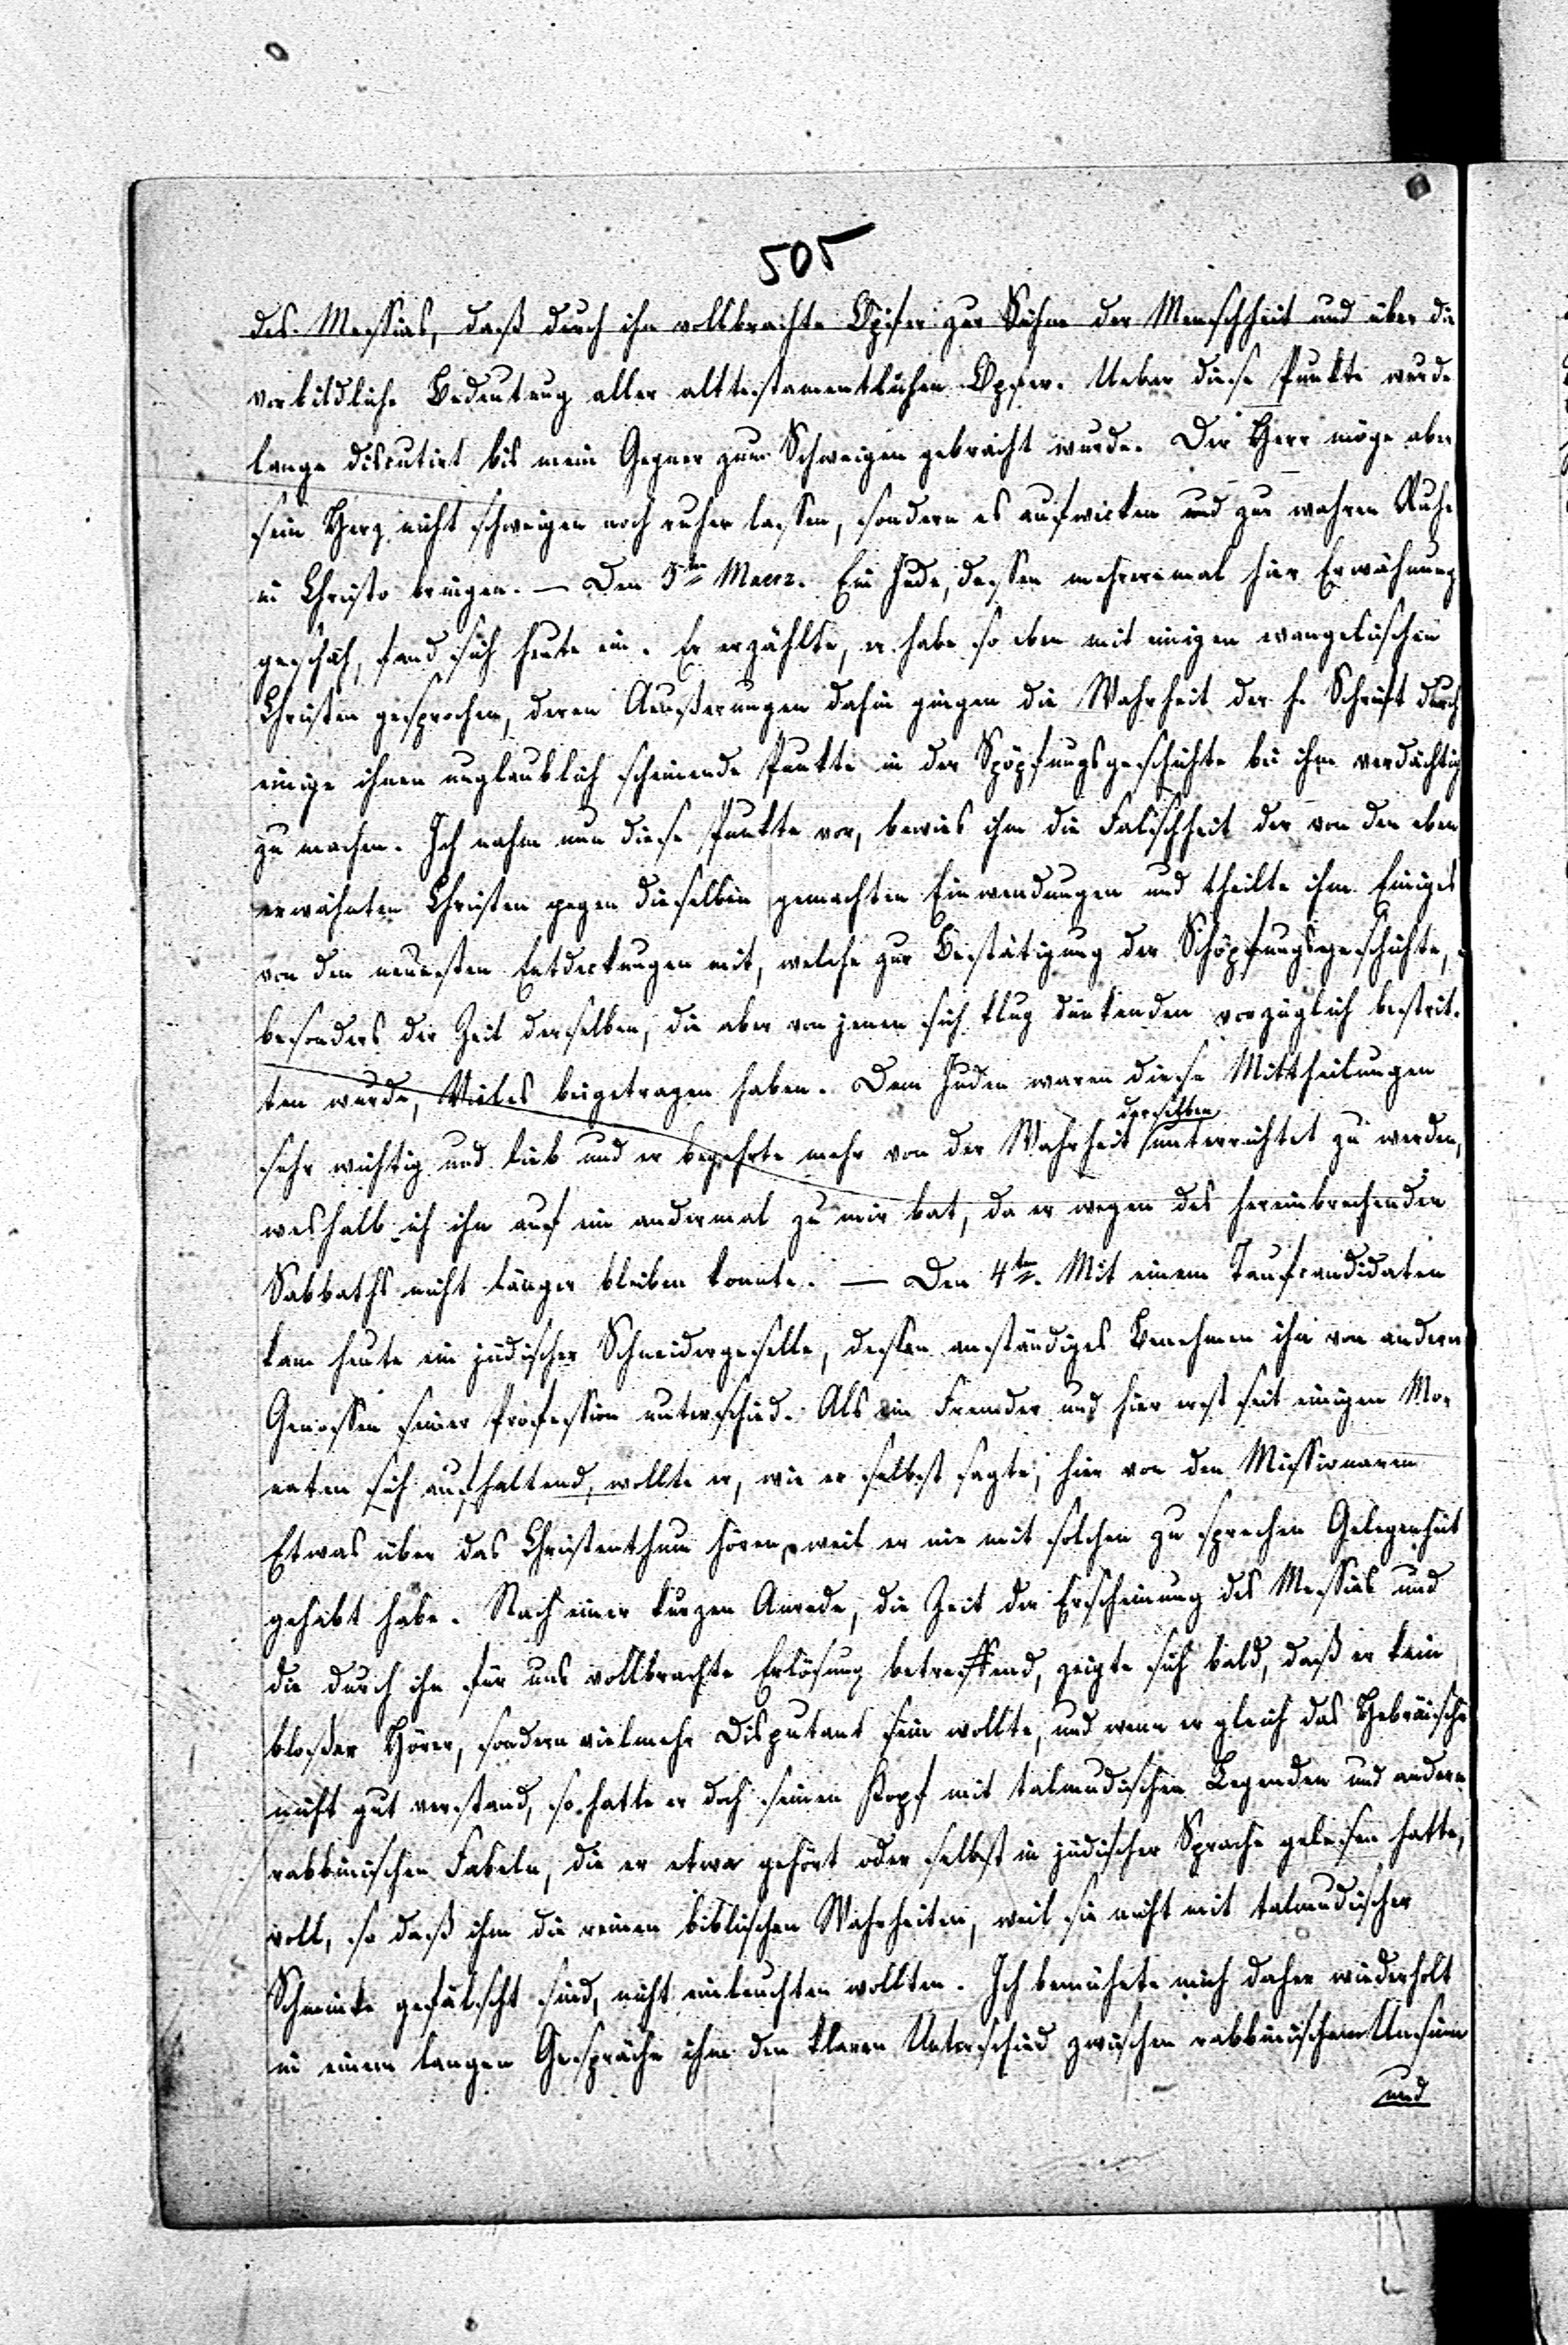 505
des Messias, daß durch ihn vollbrachte Opfer zur Sühne der Menschheit und über die
vorbildliche Bedeutung aller alttestamentlichen Opfer. Ueber diese Punkte wurde
lange discutirt bis mein Gegner zum Schweigen gebracht wurde. Der Herr möge aber
sein Herz nicht schweigen noch ruhen lassen, sondern es aufwecken und zur wahren Ruhe
in Christo bringen. — Den 3ten Maerz. Ein Jude, dessen mehreremal hier Erwähnung
geschah, fand sich heute ein. Er erzählte, er habe so eben mit einigen evangelischen
Christen gesprochen, deren Äußerungen dahin gingen die Wahrheit der h. Schrift durch
einige ihnen unglaublich scheinende Punkte in der Shöpfungsgeschichte bei ihm verdächtig
zu machen. Ich nahm nun diese Punkte vor, bewies ihm die Falschheit der von den eben
erwähnten Christen gegen dieselben gemachten Einwendungen und theilte ihm Einiges
von den neuesten Entdeckungen mit, welche zur Bestätigung der Schöpfungsgeschichte,
besonders der Zeit derselben, die aber von jenen sich klug dünkenden vorzüglich bestrit-
ten wurde, Vieles beigetragen haben. Dem Juden waren diese Mittheilungen
sehr wichtig und lieb und er begehrte mehr von der Wahrheit derselben unterrichtet zu werden,
weshalb ich ihn auf ein andermal zu mir bat, da er wegen des hereinbrechenden
Sabbaths nicht länger bleiben konnte. — Den 4ten. Mit einem Taufcandidaten
kam heute ein jüdischer Schneidergeselle, dessen anständiges Benehmen ihn von andern
Genossen seiner Profession unterschied. Als ein Fremder und hier erst seit einigen Mo-
naten sich aufhaltend, wollte er, wie er selbst sagte, hier von den Missionaren
Etwas über das Christenthum hören, weil er nie mit solchen zu sprechen Gelegenheit
gehabt habe. Nach einer kurzen Anrede, die Zeit der Erscheinung des Messias und
die durch ihn für uns vollbrachte Erlösung betreffend, zeigte sich bald, daß er kein
bloßer Hörer, sondern vielmehr Disputant sein wollte, und wenn er gleich das Hebräische
nicht gut verstand, so hatte er doch seinen Kopf mit talmudischen Legenden und andern
rabbinischen Fabeln, die er etwa gehört oder selbst in jüdischer Sprache gelesen hatte,
voll, so daß ihm die reinen biblischen Wahrheiten, weil sie nicht mit talmudischer
Schminke gefälscht sind, nicht einleuchten wollten. Ich bemühete mich daher wiederholt
in einem langen Gespräche ihm den klaren Unterschied zwischen rabbinischem Unsinn
und